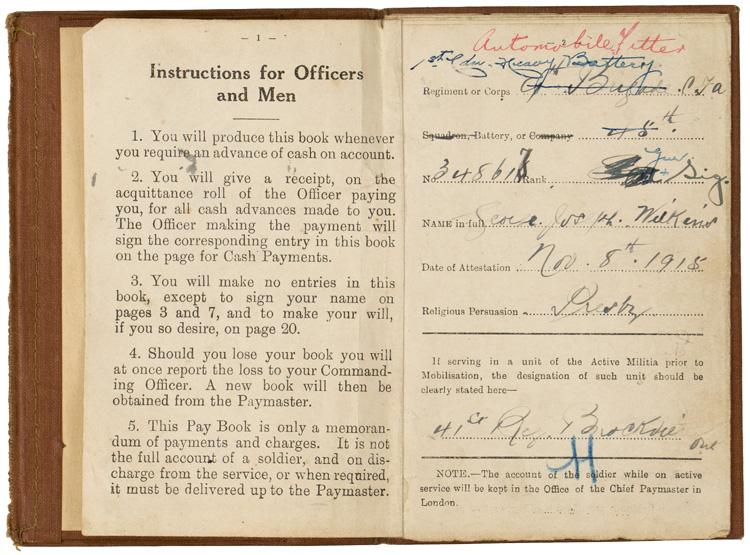 – 1 –
Instructions for Officers
and Men
1. You will produce this book whenever
you require an advance of cash on account.
2. You will give a receipt, on the
acquittance roll of the Officer paying
you, for all cash advances made to you.
The Officer making the payment will
sign the corresponding entry in this book
on the page for Cash Payments.
3. You will make no entries in this
book, except to sign your name on
pages 3 and 7, and to make your will,
if you so desire, on page 20.
4. Should you lose your book you will
at once report the loss to your Command-
ing Officer. A new book will then be
obtained from the Paymaster.
5. This Pay Book is only a memoran-
dum of payments and charges. It is not
the full account of a soldier, and on dis-
charge from the service, or when required,
it must be delivered up to the Paymaster.
Automobile Fitter
1st Cdn. Heavy Battery.
Regiment or Corps Brigade C.F.A
Squadron, Battery, or Company 45th.
No. 348617 Rank Sig.
NAME in full Wilkins
Date of Attestation Nov. 8th. 1915
Religious Persuasion Presby
If serving in a unit of the Active Militia prior to
Mobilisation, the designation of such unit should be
clearly stated here—
41st Reg. Brockville
H
NOTE.—The account of the soldier while on active
service will be kept in the Office of the Chief Paymaster in
London.